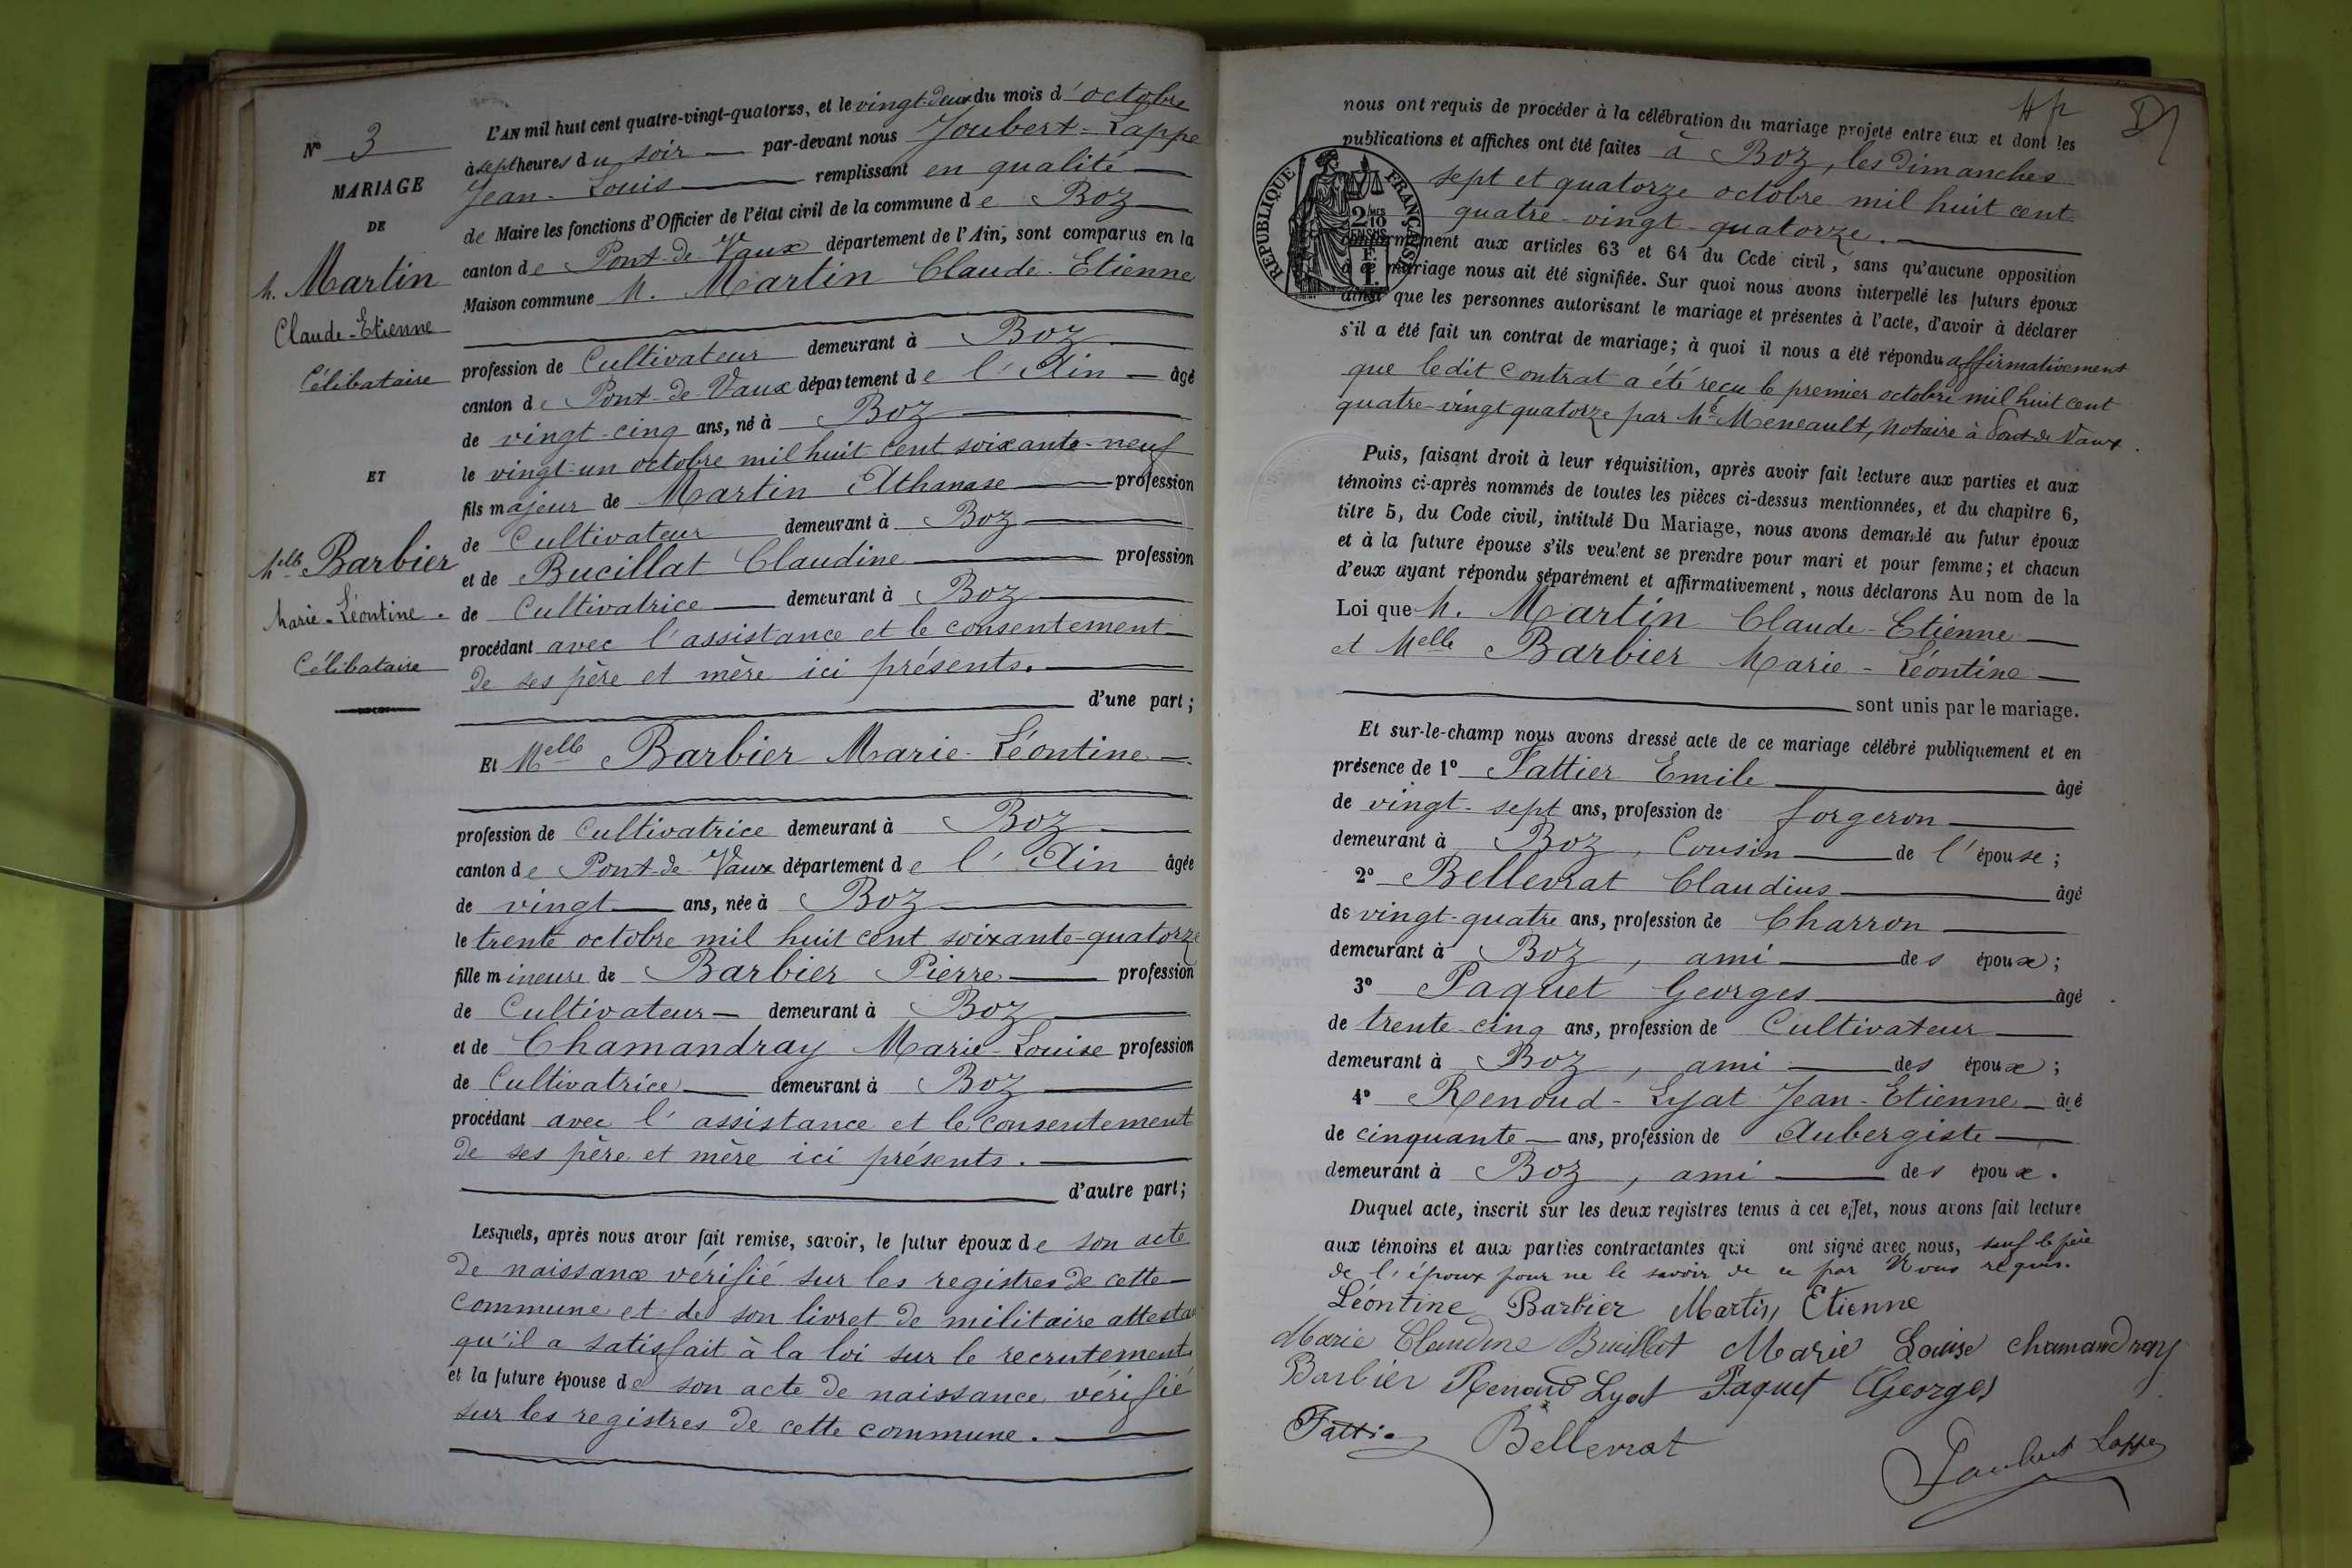 N° 3
MARIAGE
DE
M. Martin
Claude-Etienne
Célibataire
ET
Melle Barbier
Marie-Léontine.
Célibataire
L'AN mil huit cent quatre-vingt-quatorze, et le vingt-deux du mois d'octobre
à sept heures du soir par-devant nous Joubert-Lappe
Jean-Louis remplissant en qualité
de Maire les fonctions d'Officier de l'état civil de la commune de Boz
canton de Pont-de-Vaux département de l'Ain, sont comparus en la
Maison commune M. Martin Claude-Etienne
profession de Cultivateur demeurant à Boz
canton de Pont-de-Vaux département de l'Ain âgé
de vingt-cinq ans, né à Boz
le vingt-un octobre mil huit cent soixante-neuf
fils majeur de Martin Athanase profession
de Cultivateur demeurant à Boz
et de Bucillat Claudine profession
de Cultivatrice demeurant à Boz
procédant avec l'assistance et le consentement
de ses père et mère ici présents.
d'une part;
Et Melle Barbier Marie-Léontine
profession de Cultivatrice demeurant à Boz
canton de Pont-de-Vaux département de l'Ain âgée
de vingt ans, née à Boz
le trente octobre mil huit cent soixante-quatorze
fille mineure de Barbier Pierre profession
de Cultivateur demeurant à Boz
et de Chamandray Marie-Louise profession
de Cultivatrice demeurant à Boz
procédant avec l'assistance et le consentement
de ses père et mère ici présents.
d'autre part;
Lesquels, après nous avoir fait remise, savoir, le futur époux de son acte
de naissance vérifié sur les registres de cette
commune et de son livret de militaire attestant
qu'il a satisfait à la loi sur le recrutement
et la future épouse de son acte de naissance vérifié
sur les registres de cette commune.
nous ont requis de procéder à la célébration du mariage projeté entre eux et dont les
publications et affiches ont été faites à Boz, les dimanches
sept et quatorze octobre mil huit cent
quatre-vingt-quatorze.
conformément aux articles 63 et 64 du Code civil, sans qu'aucune opposition
à ce mariage nous ait été signifiée. Sur quoi nous avons interpellé les futurs époux
ainsi que les personnes autorisant le mariage et présentes à l'acte, d'avoir à déclarer
s'il a été fait un contrat de mariage; à quoi il nous a été répondu affirmativement
que ledit contrat a été reçu le premier octobre mil huit cent
quatre-vingt quatorze par Me Meneault, Notaire à Pont de Vaux.
RÉPUBLIQUE FRANÇAISE
2/10
EN SUS
F.
1.
Puis, faisant droit à leur réquisition, après avoir fait lecture aux parties et aux
témoins ci-après nommés de toutes les pièces ci-dessus mentionnées, et du chapitre 6,
titre 5, du Code civil, intitulé Du Mariage, nous avons demandé au futur époux
et à la future épouse s'ils veulent se prendre pour mari et pour femme; et chacun
d'eux ayant répondu séparément et affirmativement, nous déclarons Au nom de la
Loi que M. Martin Claude-Etienne
et Melle Barbier Marie-Léontine
sont unis par le mariage.
Et sur-le-champ nous avons dressé acte de ce mariage célébré publiquement et en
présence de 1° Fattier Emile âgé
de vingt-sept ans, profession de forgeron
demeurant à Boz, Cousin de l'épouse;
2° Bellevrat Claudius âgé
de vingt-quatre ans, profession de Charron
demeurant à Boz, ami des époux;
3° Paquet Georges âgé
de trente-cinq ans, profession de Cultivateur
demeurant à Boz, ami des époux;
4° Renoud-Lyat Jean-Etienne âgé
de cinquante ans, profession de Aubergiste
demeurant à Boz, ami des époux.
Duquel acte, inscrit sur les deux registres tenus à cet effet, nous avons fait lecture
aux témoins et aux parties contractantes qui ont signé avec nous, sauf le père
de l'époux pour ne le savoir de ce par Nous requis.
Léontine Barbier Martin Etienne
Marie Claudine Bucillat Marie Louise chamandray
Barbier Renoud Lyat Paquet Georges
Fattier Bellevrat
Joubert Lappe